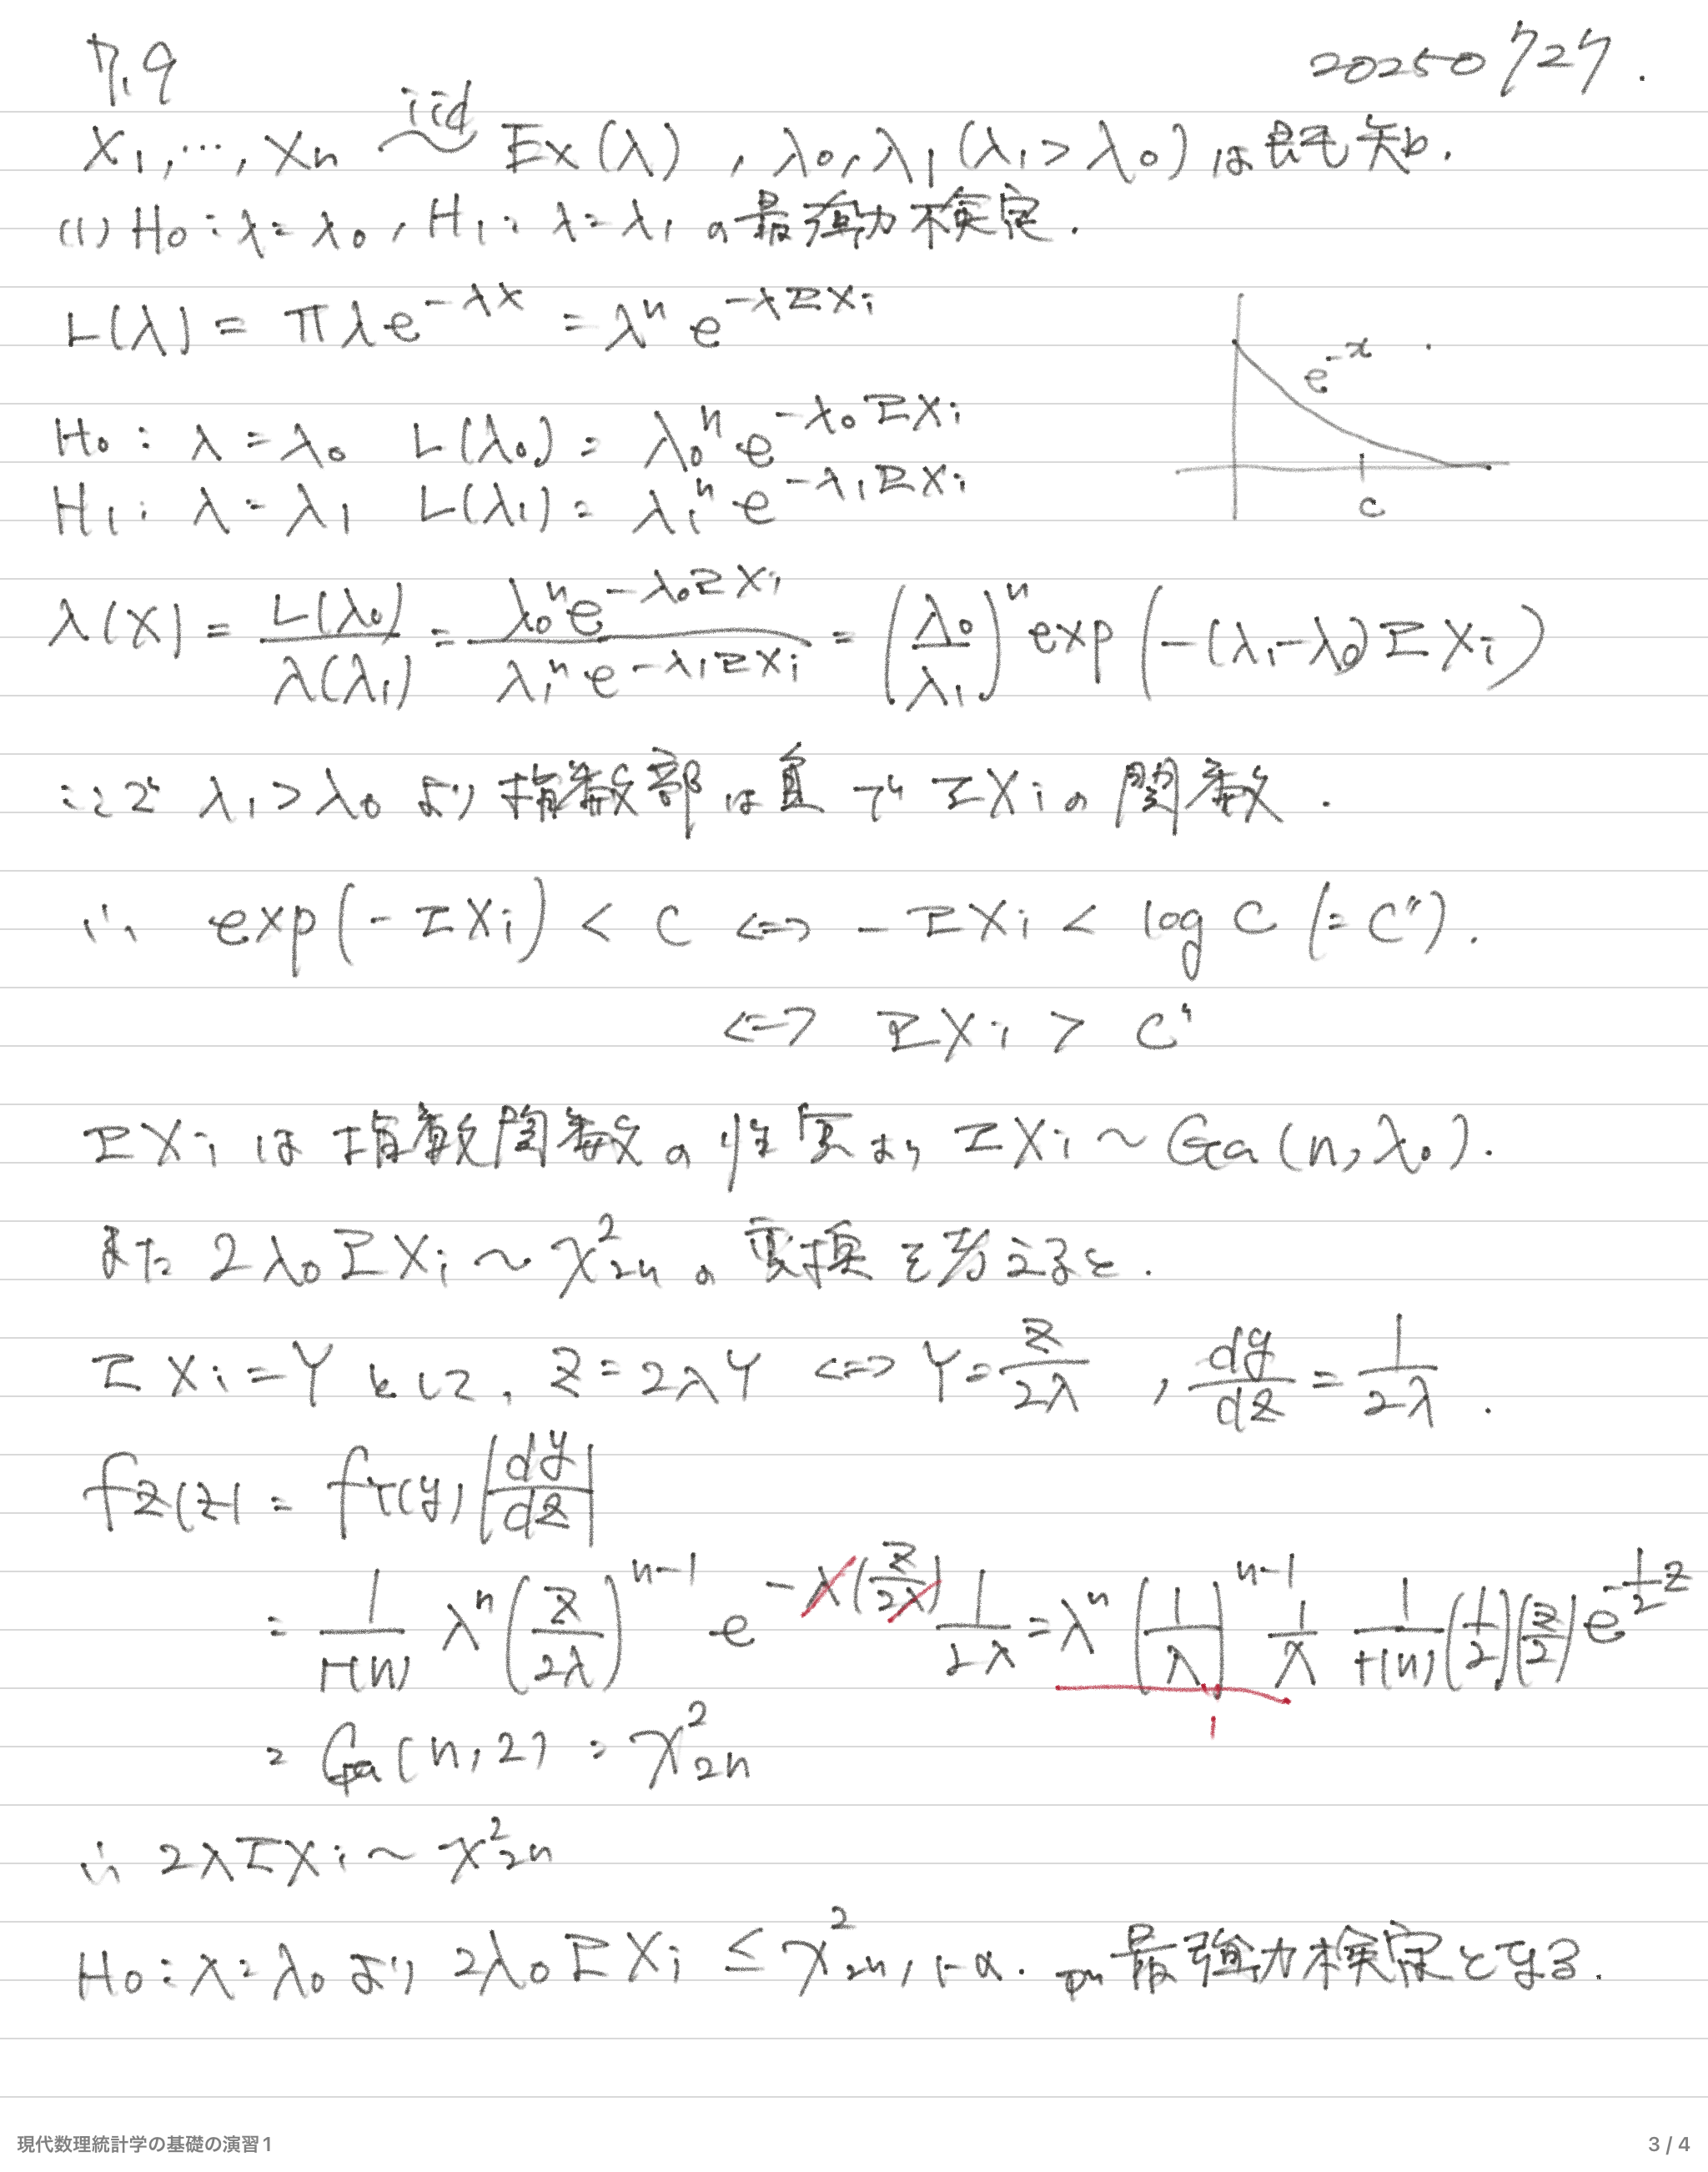 7.9 20250727.
X₁, ⋯, Xn ~iid Ex(λ), λ₀, λ₁ (λ₁ > λ₀) は既知.
(1) H₀ : λ = λ₀, H₁ : λ = λ₁ の最強力検定.
L(λ) = Π λe^{-λx} = λ^n e^{-λΣXi}
e^{-x}
c
H₀ : λ = λ₀ L(λ₀) = λ₀^n e^{-λ₀ΣXi}
H₁ : λ = λ₁ L(λ₁) = λ₁^n e^{-λ₁ΣXi}
λ(X) = L(λ₀)/λ(λ₁) = λ₀^n e^{-λ₀ΣXi} / λ₁^n e^{-λ₁ΣXi} = (λ₀/λ₁)^n exp(-(λ₁-λ₀)ΣXi)
ここで λ₁ > λ₀ より 指数部は負で ΣXiの関数.
∴ exp(-ΣXi) < C ⇔ -ΣXi < log C (= C'').
⇔ ΣXi > C''
ΣXi は指数関数の性質より ΣXi ~ Ga(n, λ₀).
また 2λ₀ΣXi ~ χ²₂n の変換を考えると.
ΣXi = Y として, Z = 2λY ⇔ Y = Z/2λ, dy/dz = 1/2λ.
fz(z) = fY(y) |dy/dz|
= 1/Γ(n) λ^n (z/2λ)^{n-1} e^{-λ(z/2λ)} 1/2λ = λ^n (1/λ)^{n-1} 1/λ 1/Γ(n) (1/2)(z/2) e^{-1/2 z}
1
= Ga(n, 2) = χ²₂n
∴ 2λΣXi ~ χ²₂n
H₀ : λ = λ₀ より 2λ₀ΣXi ≤ χ²₂n, 1-α. が最強力検定となる.
現代数理統計学の基礎の演習1 3 / 4